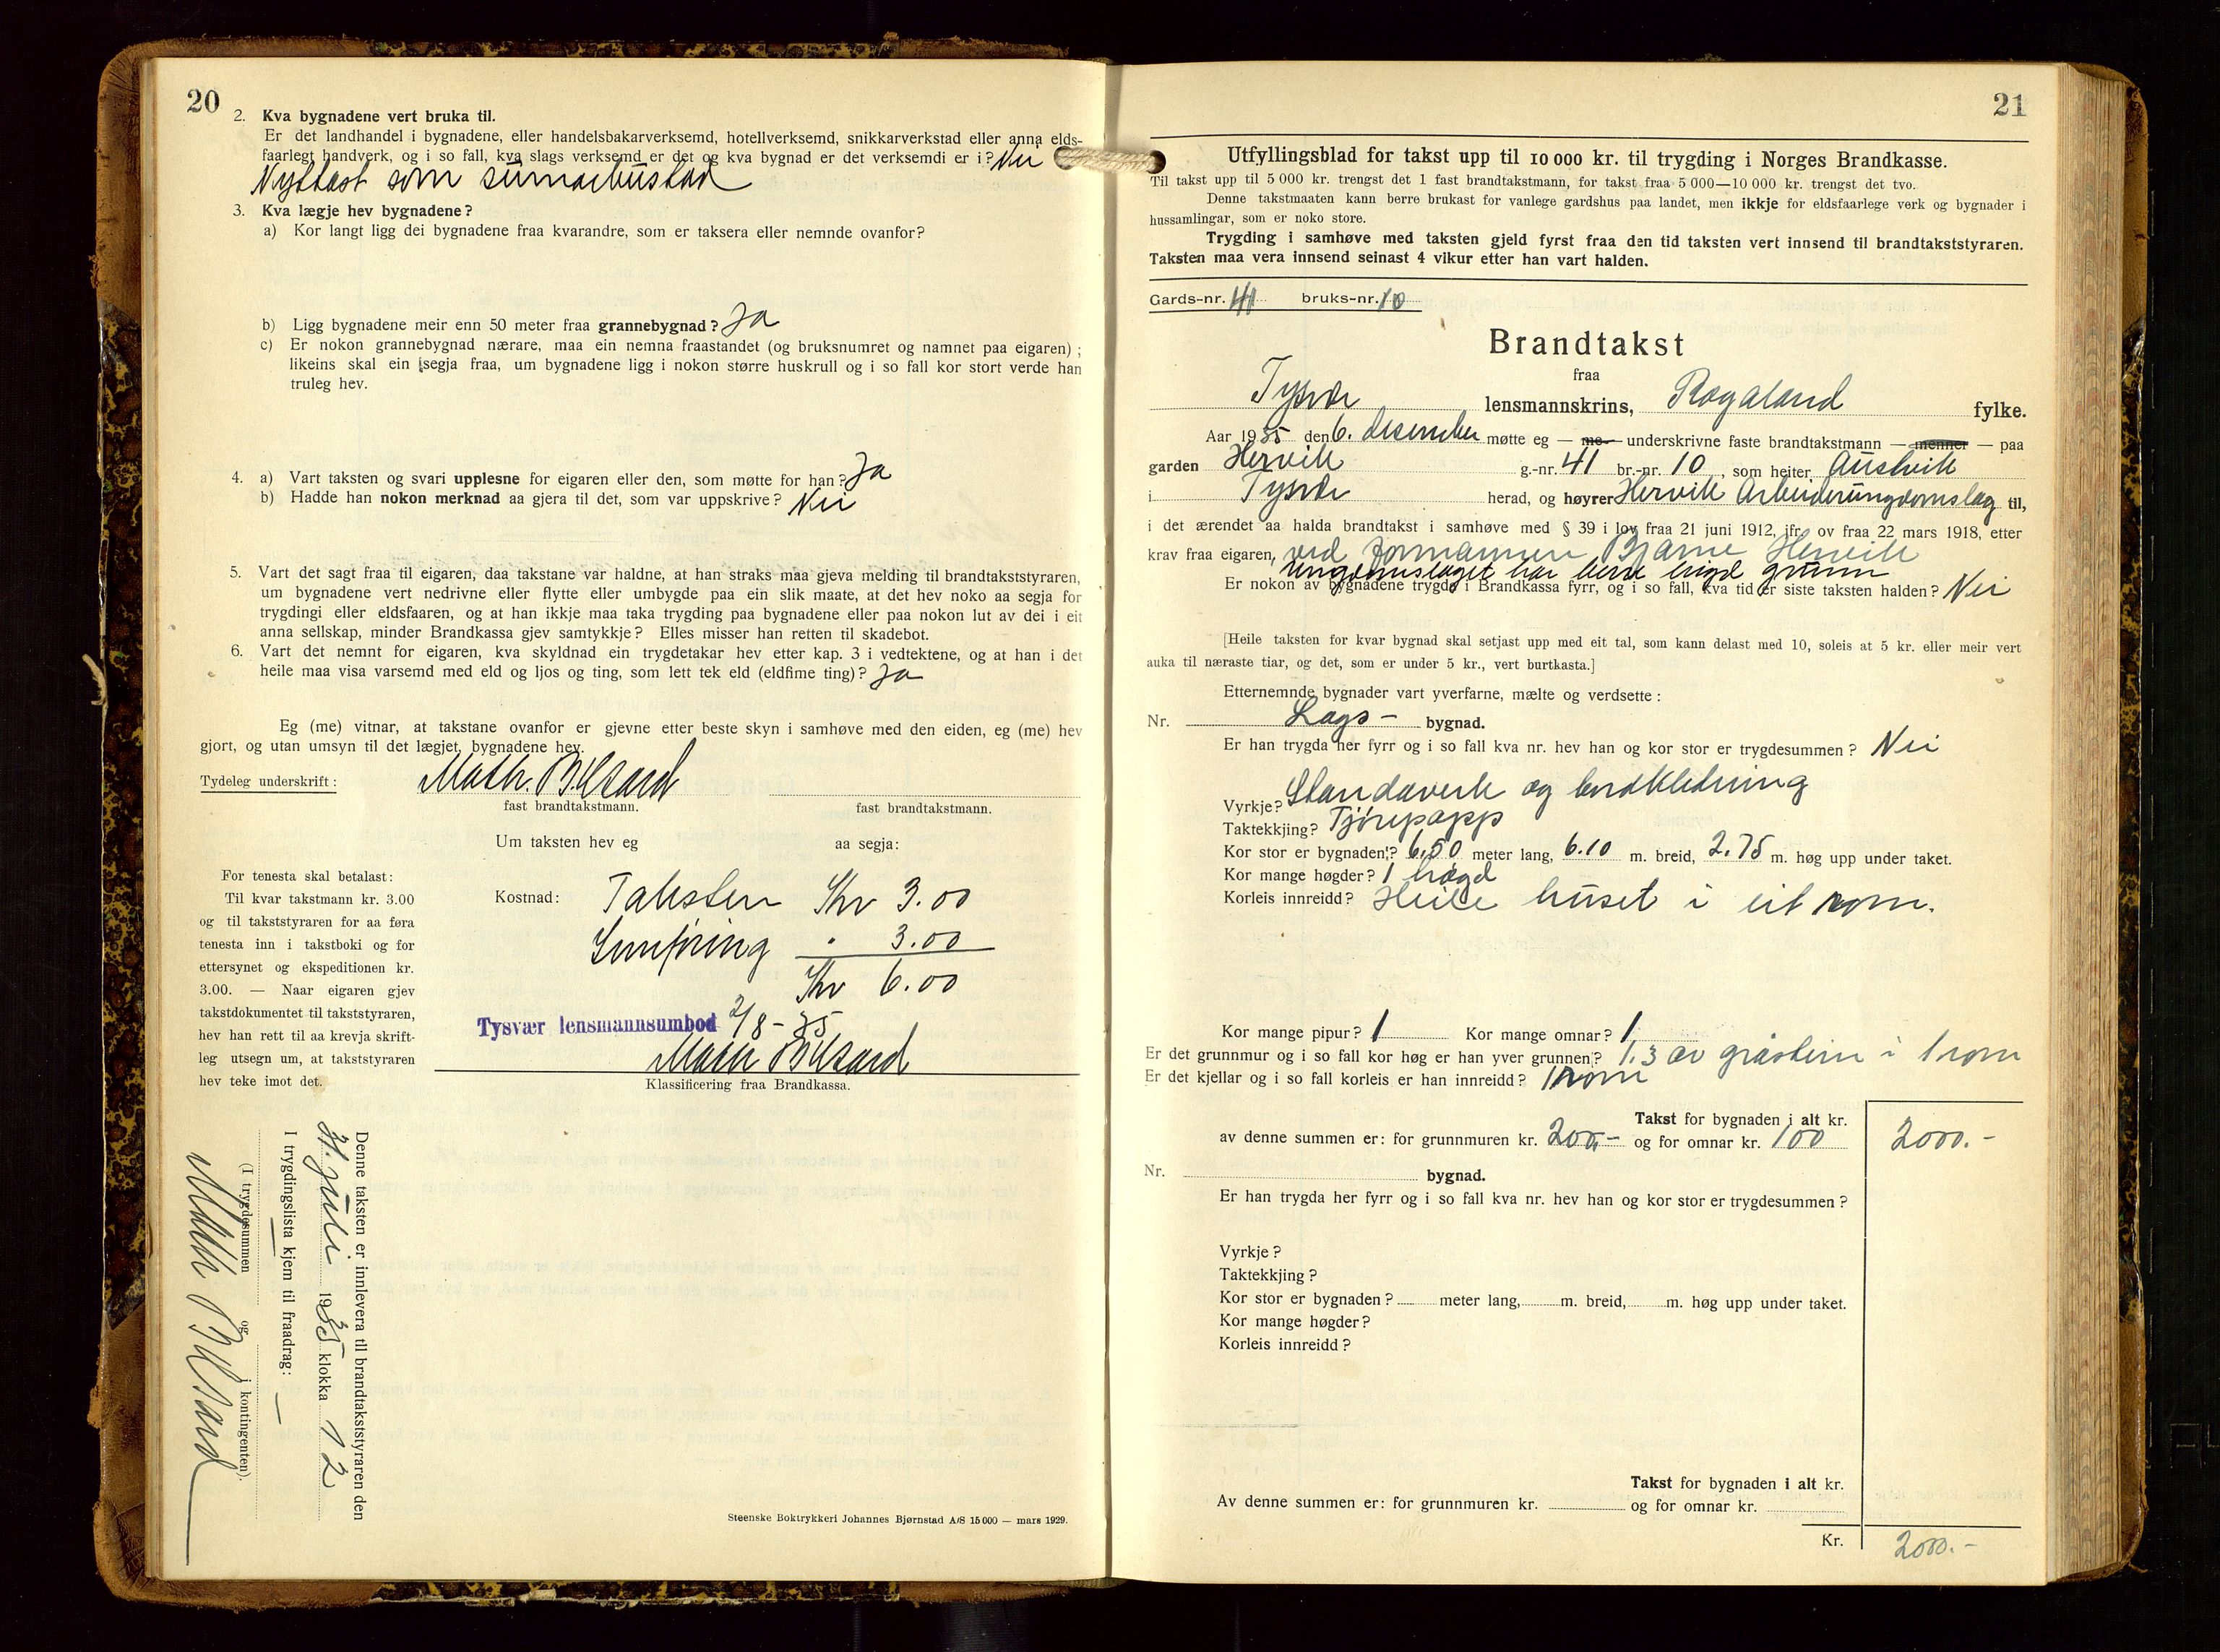 20
2. Kva bygnadene vert bruka til.
Er det landhandel i bygnadene, eller handelsbakarverksemd, hotellverksemd, snikkarverkstad eller anna elds-
faarlegt handverk, og i so fall, kva slags verksemd er det og kva bygnad er det verksemdi er i? Nei
Nyttast som sumarbustad
3. Kva lægje hev bygnadene?
a) Kor langt ligg dei bygnadene fraa kvarandre, som er taksera eller nemnde ovanfor?
b) Ligg bygnadene meir enn 50 meter fraa grannebygnad? Ja
c) Er nokon grannebygnad nærare, maa ein nemna fraastandet (og bruksnumret og namnet paa eigaren);
likeins skal ein segja fraa, um bygnadene ligg i nokon større huskrull og i so fall kor stort verde han
truleg hev.
4. a) Vart taksten og svari upplesne for eigaren eller den, som møtte for han? Ja
b) Hadde han nokon merknad aa gjera til det, som var uppskrive? Nei
5. Vart det sagt fraa til eigaren, daa takstane var haldne, at han straks maa gjeva melding til brandtakststyraren,
um bygnadene vert nedrivne eller flytte eller umbygde paa ein slik maate, at det hev noko aa segja for
trygdingi eller eldsfaaren, og at han ikkje maa taka trygding paa bygnadene eller paa nokon lut av dei i eit
anna sellskap, minder Brandkassa gjev samtykkje? Elles misser han retten til skadebot.
6. Vart det nemnt for eigaren, kva skyldnad ein trygdetakar hev etter kap. 3 i vedtektene, og at han i det
heile maa visa varsemd med eld og ljos og ting, som lett tek eld (eldfime ting)? Ja
Eg (me) vitnar, at takstane ovanfor er gjevne etter beste skyn i samhøve med den eiden, eg (me) hev
gjort, og utan umsyn til det lægjet, bygnadene hev.
Tydeleg underskrift: Math. Bilsard
fast brandtakstmann. fast brandtakstmann.
Um taksten hev eg aa segja:
For tenesta skal betalast:
Til kvar takstmann kr. 3.00
og til takststyraren for aa føra
tenesta inn i takstboki og for
ettersynet og ekspeditionen kr.
3.00. — Naar eigaren gjev
takstdokumentet til takststyraren,
hev han rett til aa krevja skrift-
leg utsegn um, at takststyraren
hev teke imot det.
Kostnad: Taksten Kr 3.00
Innføring " 3.00
Kr 6.00
Tysvær lensmannsumbod 2/8-35
Math Bilsard
Klassificering fraa Brandkassa.
Denne taksten er innlevera til brandtakststyraren den
31. juli 1935 klokka 12
I trygdingslista kjem til fraadrag: —
(I trygdesummen og i kontingenten).
Math Bilsard
Steenske Boktrykkeri Johannes Bjørnstad A/S 15 000 — mars 1929.
21
Utfyllingsblad for takst upp til 10 000 kr. til trygding i Norges Brandkasse.
Til takst upp til 5 000 kr. trengst det 1 fast brandtakstmann, for takst fraa 5 000—10 000 kr. trengst det tvo.
Denne takstmaaten kann berre brukast for vanlege gardshus paa landet, men ikkje for eldsfaarlege verk og bygnader i
hussamlingar, som er noko store.
Trygding i samhøve med taksten gjeld fyrst fraa den tid taksten vert innsend til brandtakststyraren.
Taksten maa vera innsend seinast 4 vikur etter han vart halden.
Gards-nr. 41 bruks-nr. 10
Brandtakst
fraa
Tysvær lensmannskrins, Rogaland fylke.
Aar 1935 den 6. desember møtte eg — me — underskrivne faste brandtakstmann — menner — paa
garden Hervik g.-nr. 41 br.-nr. 10, som heiter Austvik
i Tysvær herad, og høyrer Hervik Arbeiderungdomslag til,
i det ærendet aa halda brandtakst i samhøve med § 39 i lov fraa 21 juni 1912, jfr. ov fraa 22 mars 1918, etter
krav fraa eigaren, ved formannen Bjarne Hervik
Ungdomslaget har berre bygd grunn
Er nokon av bygnadene trygda i Brandkassa fyrr, og i so fall, kva tid er siste taksten halden? Nei
[Heile taksten for kvar bygnad skal setjast upp med eit tal, som kann delast med 10, soleis at 5 kr. eller meir vert
auka til næraste tiar, og det, som er under 5 kr., vert burtkasta.]
Etternemnde bygnader vart yverfarne, mælte og verdsette:
Nr. Lags- bygnad.
Er han trygda her fyrr og i so fall kva nr. hev han og kor stor er trygdesummen? Nei
Vyrkje? Standaverk og bordkledning
Taktekkjing? Tjørepapp
Kor stor er bygnaden? 6.50 meter lang, 6.10 m. breid, 2.75 m. høg upp under taket.
Kor mange høgder? 1 høgd
Korleis innreidd? Heile huset i eit rom.
Kor mange pipur? 1 Kor mange omnar? 1
Er det grunnmur og i so fall kor høg er han yver grunnen? 1.3 av gråstein i 1 rom
Er det kjellar og i so fall korleis er han innreidd? 1 rom
Takst for bygnaden i alt kr. 2000.-
av denne summen er: for grunnmuren kr. 200,- og for omnar kr. 100
Nr. bygnad.
Er han trygda her fyrr og i so fall kva nr. hev han og kor stor er trygdesummen?
Vyrkje?
Taktekkjing?
Kor stor er bygnaden? meter lang, m. breid, m. høg upp under taket.
Kor mange høgder?
Korleis innreidd?
Takst for bygnaden i alt kr.
Av denne summen er: for grunnmuren kr. og for omnar kr.
Kr. 2000.-